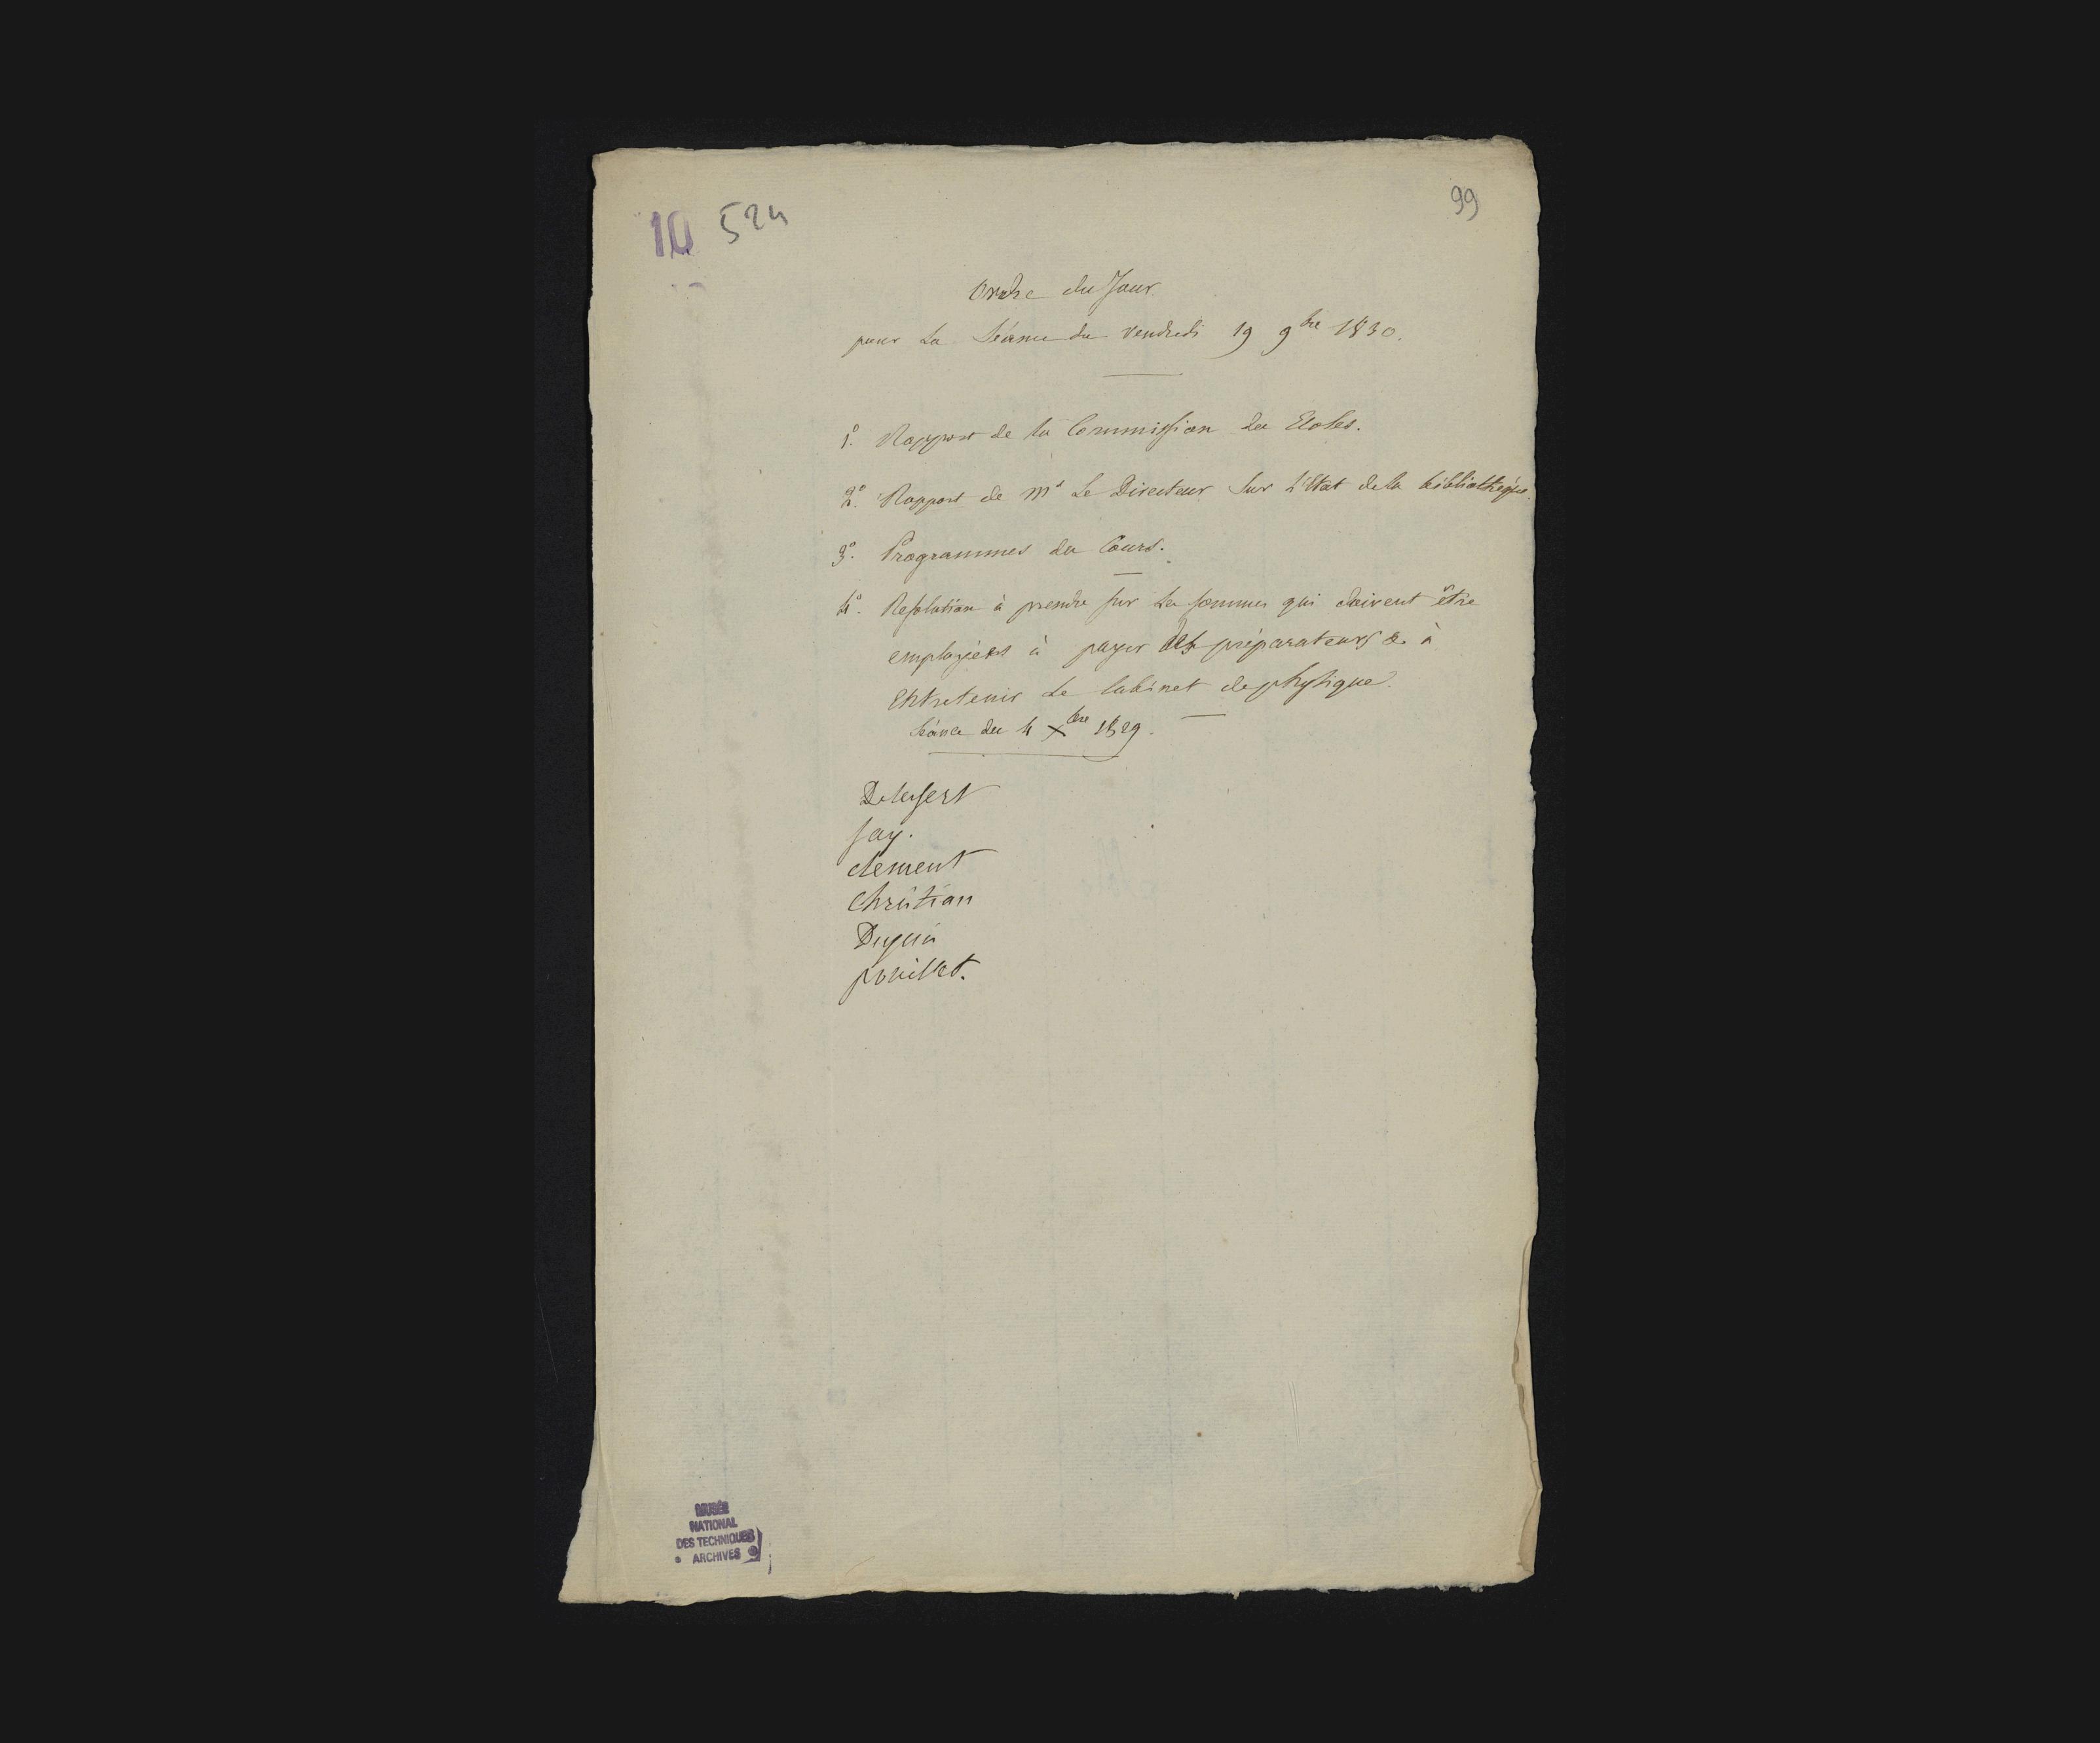 10 524
99
Ordre du Jour
pour La Séance du Vendredi 19 9bre 1830.
1o. Rapport de la Commission des Ecoles.
2o. Rapport de Mr Le Directeur Sur L'Etat de la bibliothéque.
3o. Programmes des Cours.
4o. Resolution à prendre sur les sommes qui doivent être
employées à payer des préparateurs & à
Entretenir Le Cabinet de physique.
Séance du 4 Xbre 1829.
Delessert
Say.
clement
Christian
Dupin
pouillet.
MUSÉE
NATIONAL
DES TECHNIQUES
ARCHIVES